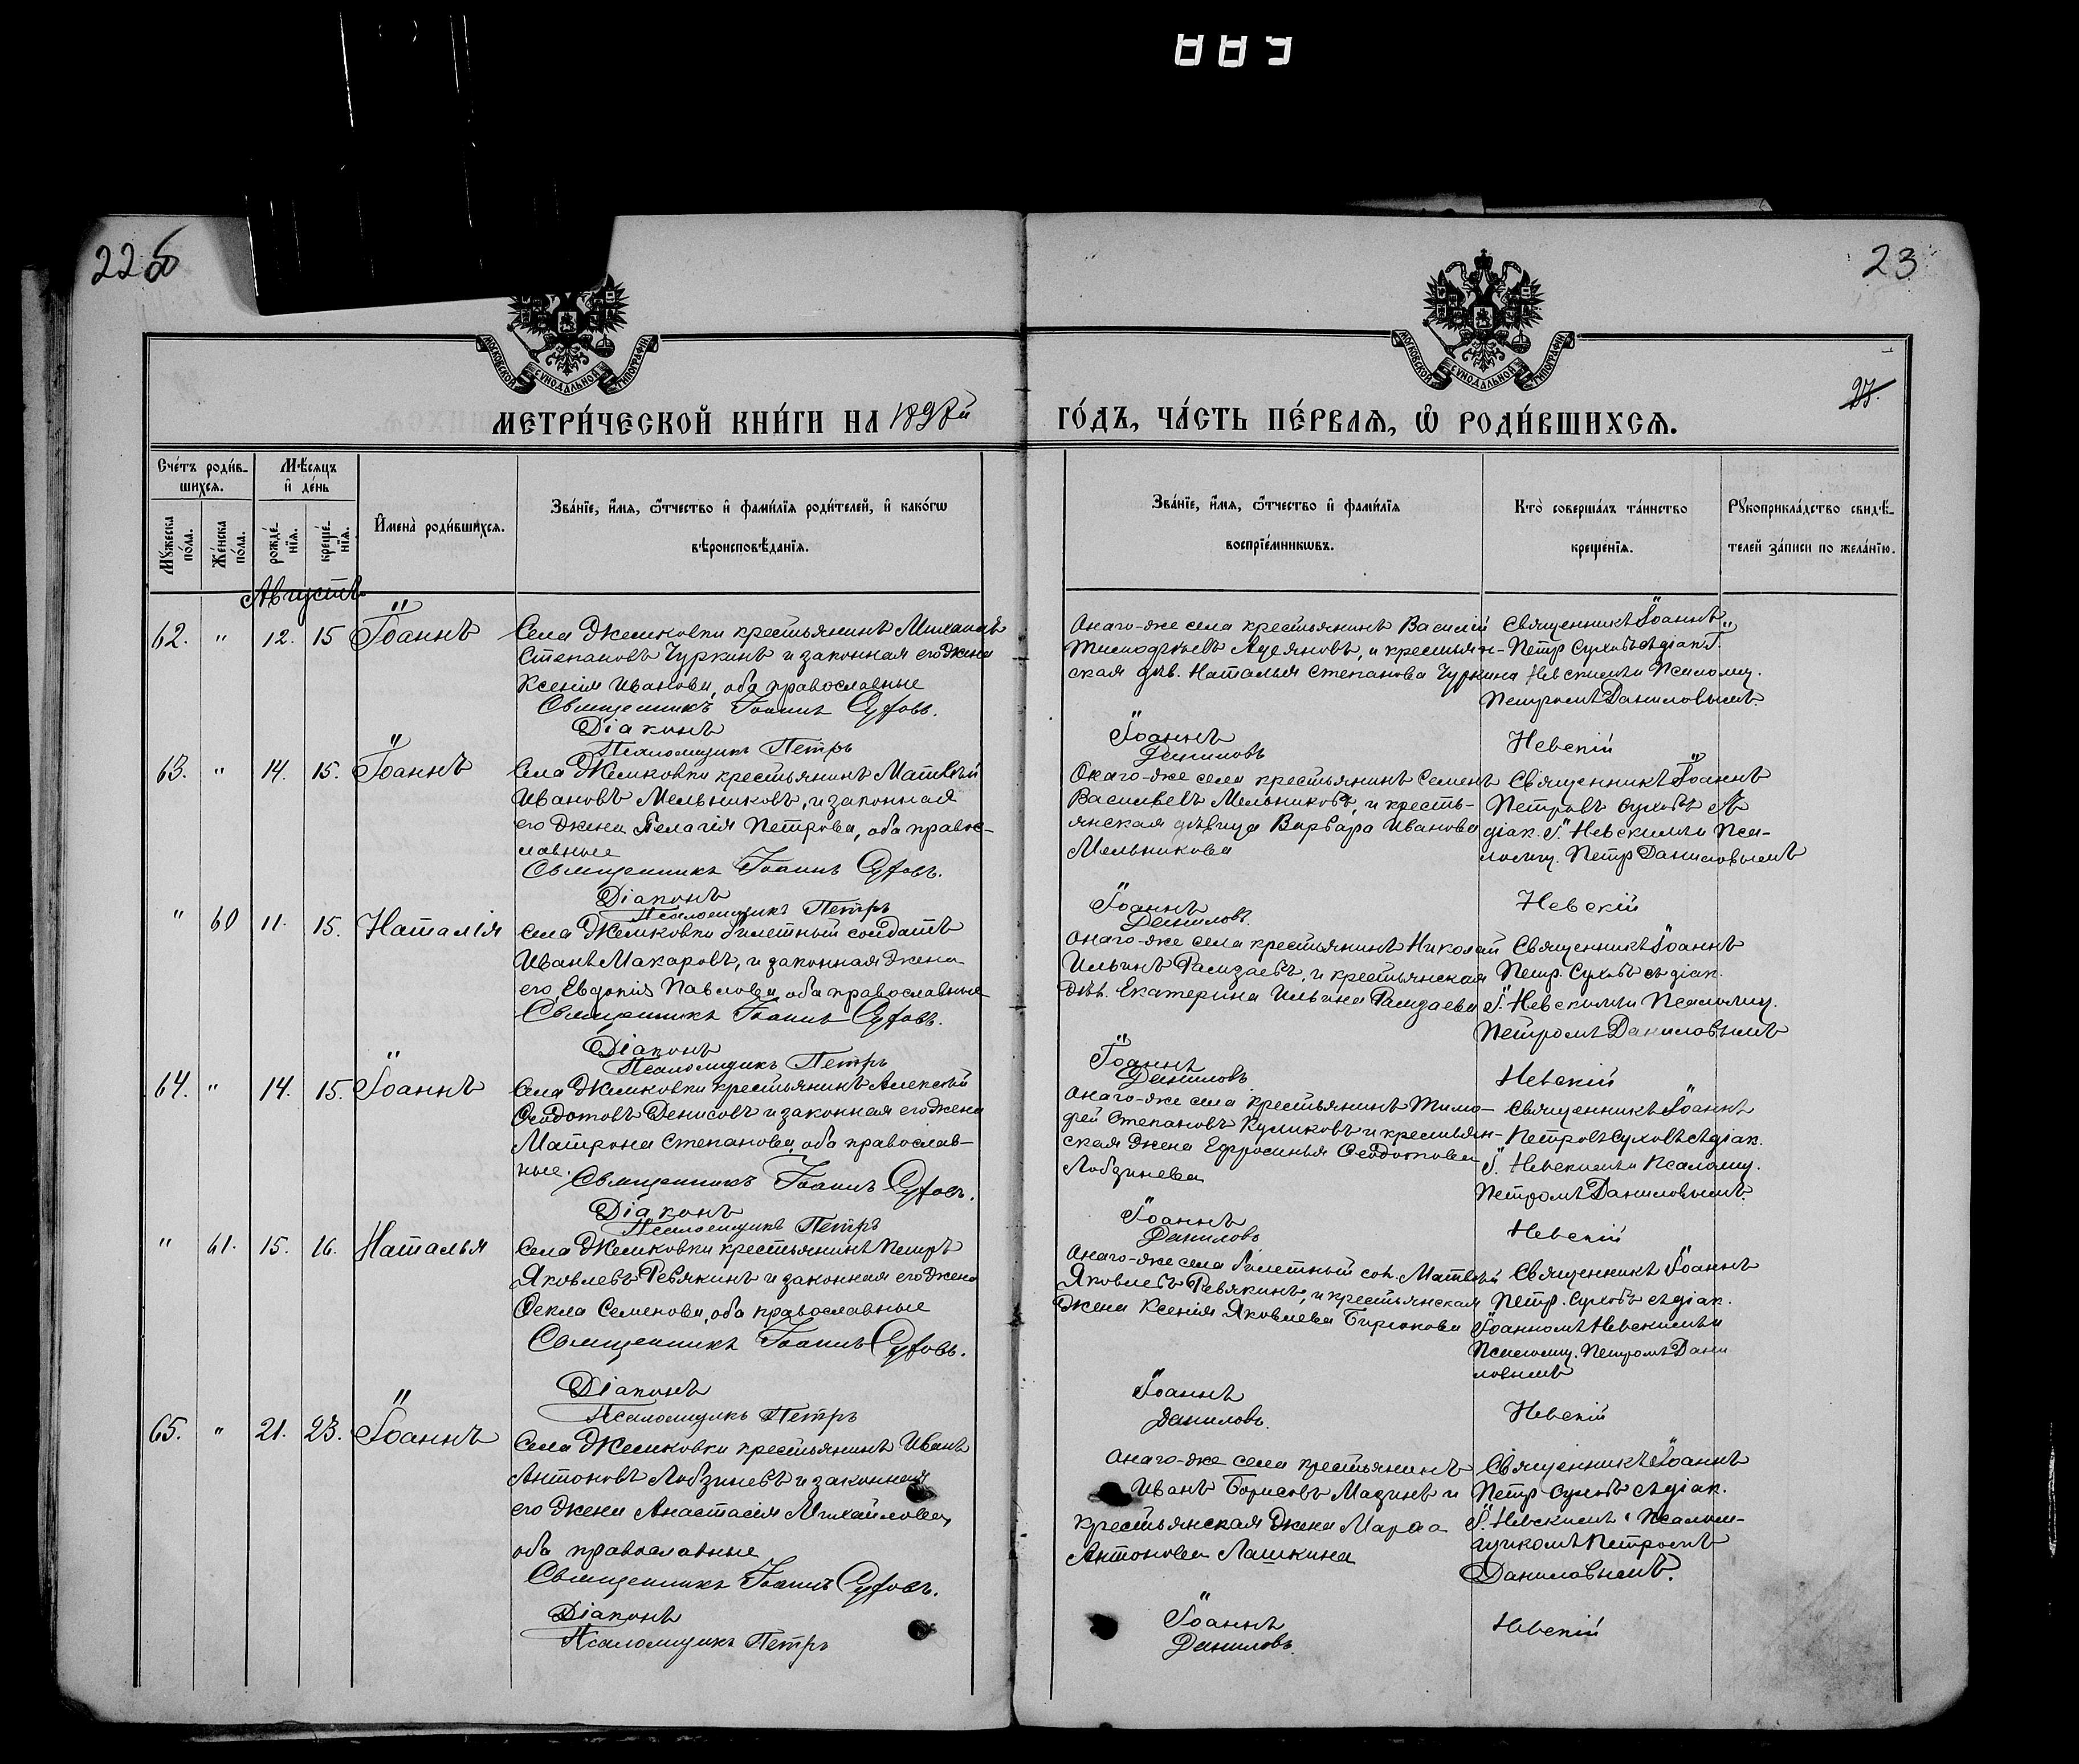 889
22об
23
МОСКОВСКОЙ СУНОДАЛЬНОЙ ТИПОГРАФІИ
МОСКОВСКОЙ СУНОДАЛЬНОЙ ТИПОГРАФІИ
27.
МЕТРИ́ЧЕСКОЙ КНИ́ГИ НА 1897й
ГО́ДЪ, ЧА́СТЬ ПЕ́РВАѦ, Ѡ҆ РОДИ́ВШИХСѦ.
Сче́тъ роди́в-
шихсѧ.
Мꙋ́жеска по́ла.
Же́нска по́ла.
Мѣ́сѧцъ
и҆ де́нь
рожде́-
нїѧ.
креще́-
нїѧ.
И҆мена̀ роди́вшихсѧ.
Зва́нїе, и҆́мѧ, ѻ҆́тчество и҆ фами́лїѧ роди́телей, и҆ како́гѡ
вѣроисповѣ́данїѧ.
Зва́нїе, и҆́мѧ, ѻ҆́тчество и҆ фами́лїѧ
воспрїе́мникѡвъ.
Кто̀ соверша́лъ та́инство
креще́нїѧ.
Рꙋкоприкла́дство свидѣ́-
телей за́писи по жела́нїю.
Августъ
62. " 12. 15 Іоаннъ
Села Жемковки крестьянинъ Михаилъ
Степановъ Чуркинъ и законная его жена
Ксенія Иванова, оба православные
Священникъ Іоаннъ Суховъ.
Діаконъ
Псаломщикъ Петръ
Онаго-же села крестьянинъ Василій
Тимофѣевъ Адеяновъ, и крестьян-
ская дѣв. Наталья Степанова Чуркина
Іоаннъ
Даниловъ
Священникъ Іоаннъ
Петр Суховъ съ діак. І.
Невскимъ и Псаломщ.
Петромъ Даниловымъ.
Невскій
63. " 14. 15. Іоаннъ
Села Жемковки крестьянинъ Матвѣй
Ивановъ Мельниковъ, и законная
его жена Пелагія Петрова, оба правос-
лавные
Священникъ Іоаннъ Суховъ.
Діаконъ
Псаломщикъ Петръ
Онаго-же села крестьянинъ Семенъ
Васильевъ Мельниковъ, и кресть-
янская дѣвица Варвара Иванова
Мельникова
Іоаннъ
Даниловъ.
Священникъ Іоаннъ
Петровъ Суховъ съ
діак. І. Невскимъ и Пса-
ломщ. Петр Даниловымъ
Невскій
" 60 11. 15. Наталія
Села Жемковки билетный солдатъ
Иванъ Макаровъ, и законная жена
его, Евдокія Павлова, оба православные
Священникъ Іоаннъ Суховъ.
Діаконъ
Псаломщикъ Петръ
Онаго-же села крестьянинъ Николай
Ильинъ Рамзаевъ, и крестьянская
дѣв. Екатерина Ильина Рамзаева
Іоаннъ
Даниловъ
Священникъ Іоаннъ
Петр. Суховъ съ діак.
І. Невскимъ и Псаломщ.
Петромъ Даниловымъ
Невскій
64. " 14. 15. Іоаннъ
Села Жемковки крестьянинъ Алексѣй
Ѳеодотовъ Денисовъ и законная его жена
Матрона Степанова, оба православ-
ные. Священникъ Іоаннъ Суховъ.
Діаконъ
Псаломщикъ Петръ
Онаго-же села крестьянинъ Тимо-
фей Степановъ Куликовъ и крестьян-
ская жена Ефросинья Ѳеодотова
Лобзинева
Іоаннъ
Даниловъ
Священникъ Іоаннъ
Петровъ Суховъ съ діак.
І. Невскимъ и Псаломщ.
Петромъ Даниловымъ
Невскій
" 61. 15. 16. Наталья
Села Жемковки крестьянинъ Петръ
Яковлевъ Ревякинъ и законная его жена
Ѳекла Семенова, оба православные
Священникъ Іоаннъ Суховъ.
Діаконъ
Псаломщикъ Петръ
Онаго-же села билетный сол. Матвѣй
Яковлевъ Ревякинъ, и крестьянская
жена Ксенія Яковлева Бирюкова
Іоаннъ
Даниловъ.
Священникъ Іоаннъ
Петр. Суховъ съ діак.
Іоанномъ Невскимъ и
Псаломщ. Петромъ Дани
ловымъ
Невскій
65. " 21. 23. Іоаннъ
Села Жемковки крестьянинъ Иванъ
Антоновъ Лобзиневъ и законная
его жена Анастасія Михайлова,
оба православные
Священникъ Іоаннъ Суховъ.
Діаконъ
Псаломщикъ Петръ
Онаго-же села крестьянинъ
Иванъ Борисовъ Мазинъ и
крестьянская жена Марѳа
Антонова Лашкина
Іоаннъ
Даниловъ.
Священникъ Іоаннъ
Петр Суховъ съ діак.
І. Невскимъ и Псалом-
щикомъ Петромъ
Даниловымъ.
Невскій